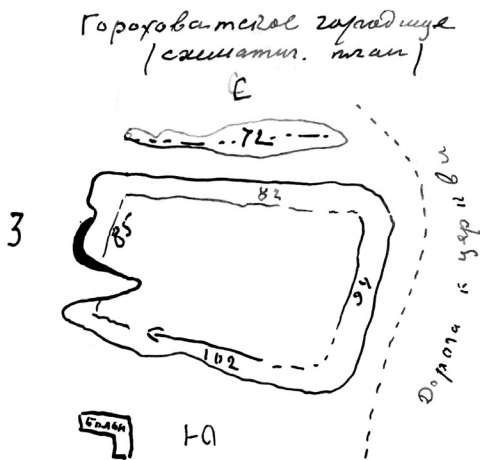 Гороховатское городище
(схематич. план)
С
72
82
З
85
94
102
Дорога к церкви
Ю